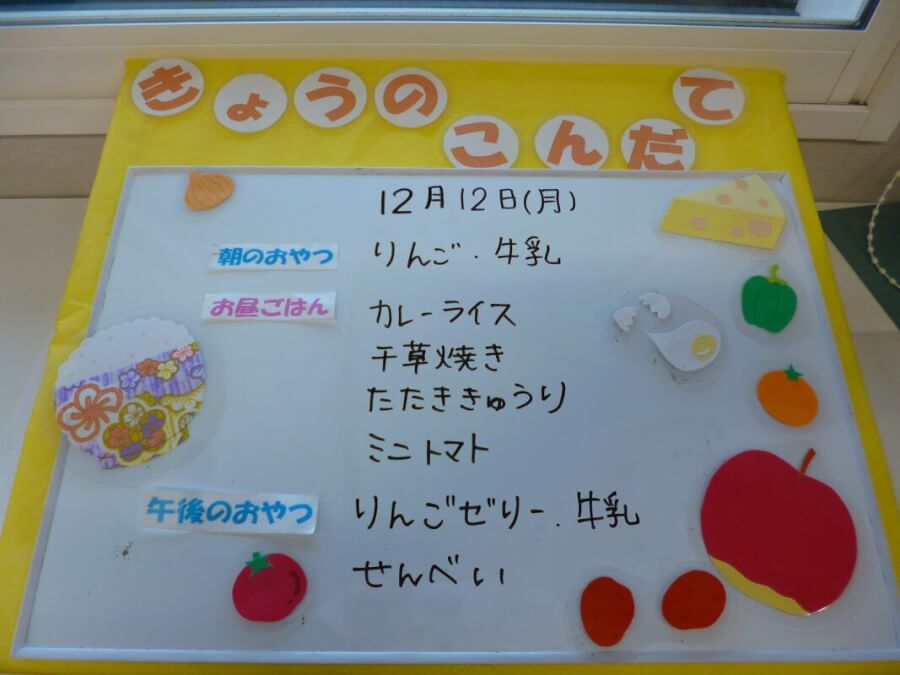 きょうの
こんだて
12月12日(月)
朝のおやつ りんご・牛乳
お昼ごはん カレーライス
千草焼き
たたききゅうり
ミニトマト
午後のおやつ りんごゼリー・牛乳
せんべい